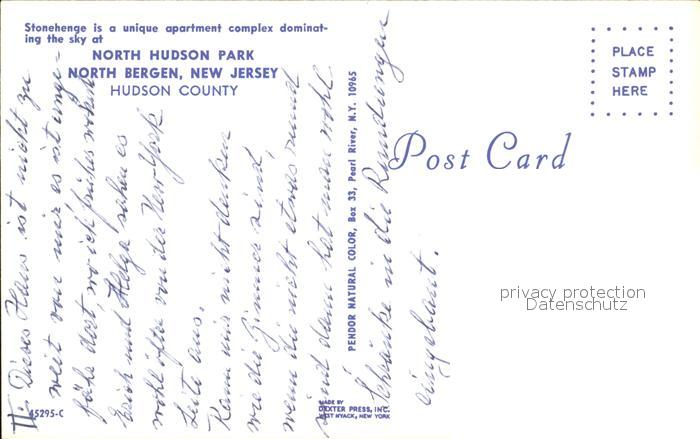 Stonehenge is a unique apartment complex dominat-
ing the sky at
NORTH HUDSON PARK
NORTH BERGEN, NEW JERSEY
HUDSON COUNTY
PLACE
STAMP
HERE
Post Card
PENDOR NATURAL COLOR, Box 33, Pearl River, N.Y. 10965
II. Dieses Haus ist nicht zu
weit von mir es ist unge-
fähr dort, wo ich früher wohnte
Erich und Helga sahen es
wohl öfter von der New York
Seite aus.
Kann mir nicht denken
wie die Zimmer sind,
wenn die nicht etwas rund
sind dann hat man wohl
Schränke in die Rundungen
eingebaut.
45295-C
MADE BY
DEXTER PRESS, INC.
WEST NYACK, NEW YORK
privacy protection
Datenschutz